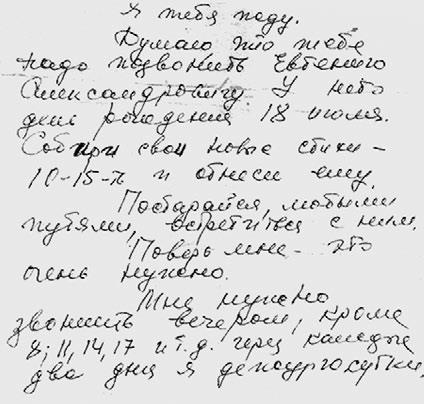 Я тебя жду.
Думаю что тебе
надо позвонить Евгению
Александровичу. У него
день рождения 18 июля.
Собери свои новые стихи –
10-15-ть и отнеси ему.
Постарайся, любыми
путями, встретиться с ним.
Поверь мне – это
очень нужно.
Мне нужно
звонить вечером, кроме
8; 11, 14, 17 и т.д. через каждые
два дня я дежурю сутки.